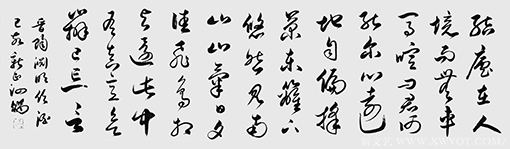 结廬在人
境而無車
馬喧问君何
能尔心遠
地自偏採
菊東籬下
悠然見南
山山氣日夕
佳飛鳥相
与還此中
有真意欲
辯已忘言
晉陶渊明飲酒
己亥新正